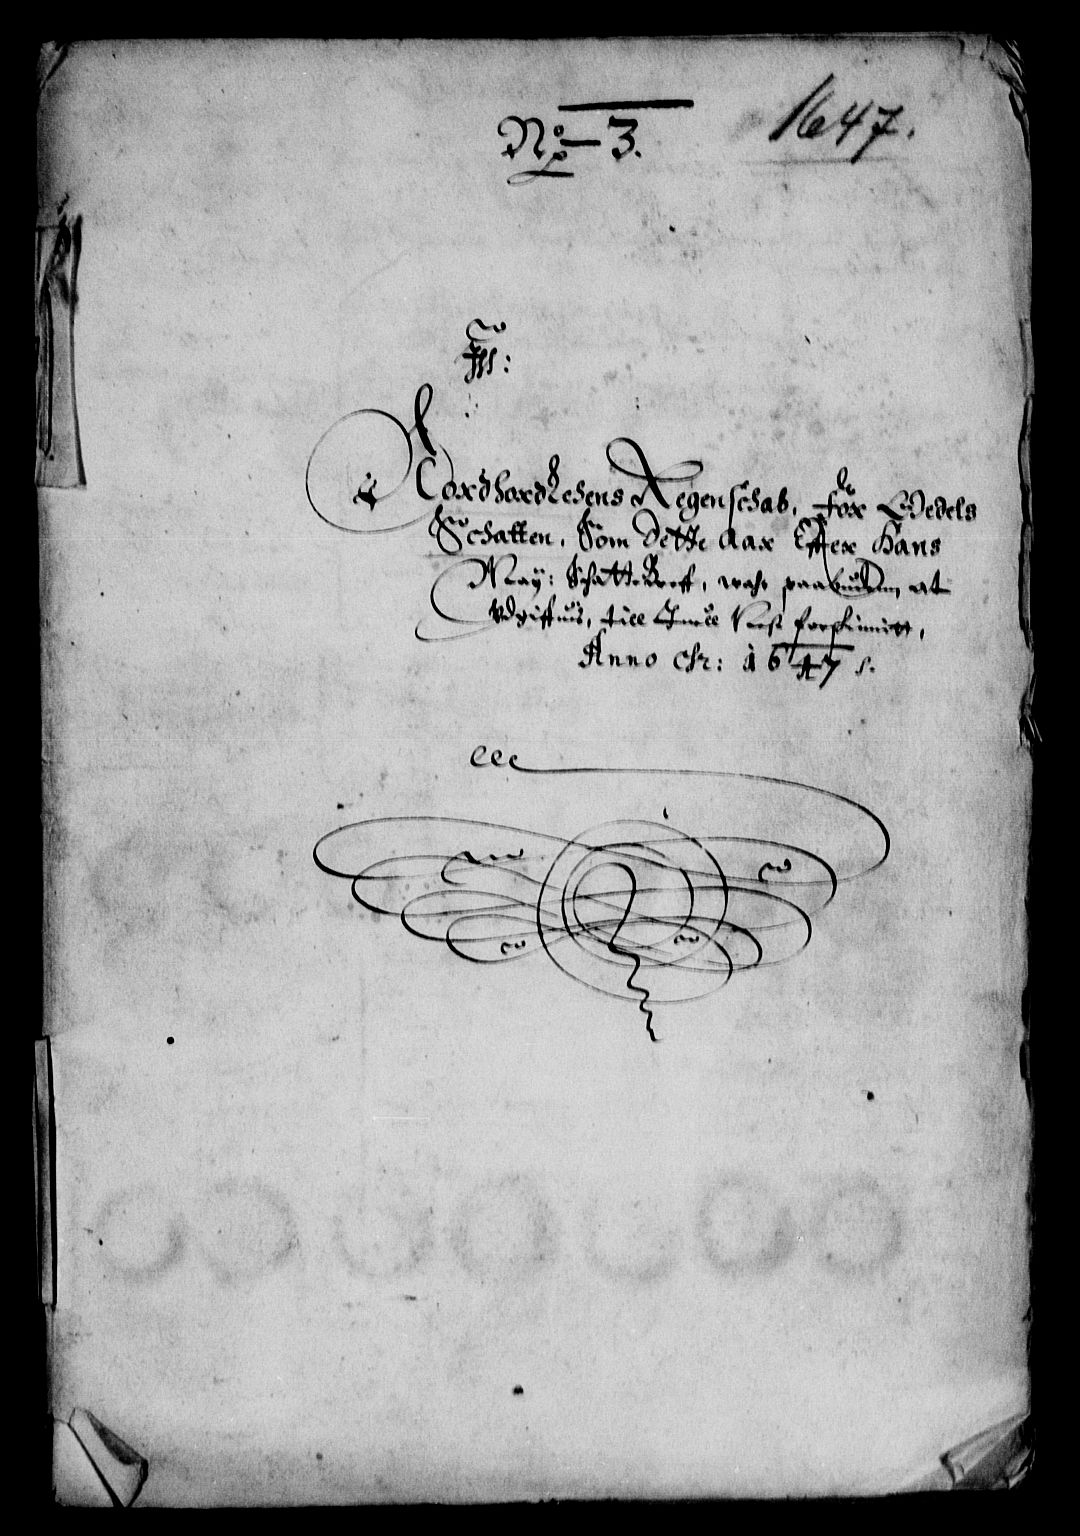 No 3.
1647.
Nordhordlehens Regenschab, för Wedels
Schatten, Som dette Aar Effter Hans
May: Schatte breff, wahr paabuden, at
udgiffuis, till Juell Nest forschinnitt,
Anno Chr: 1647.